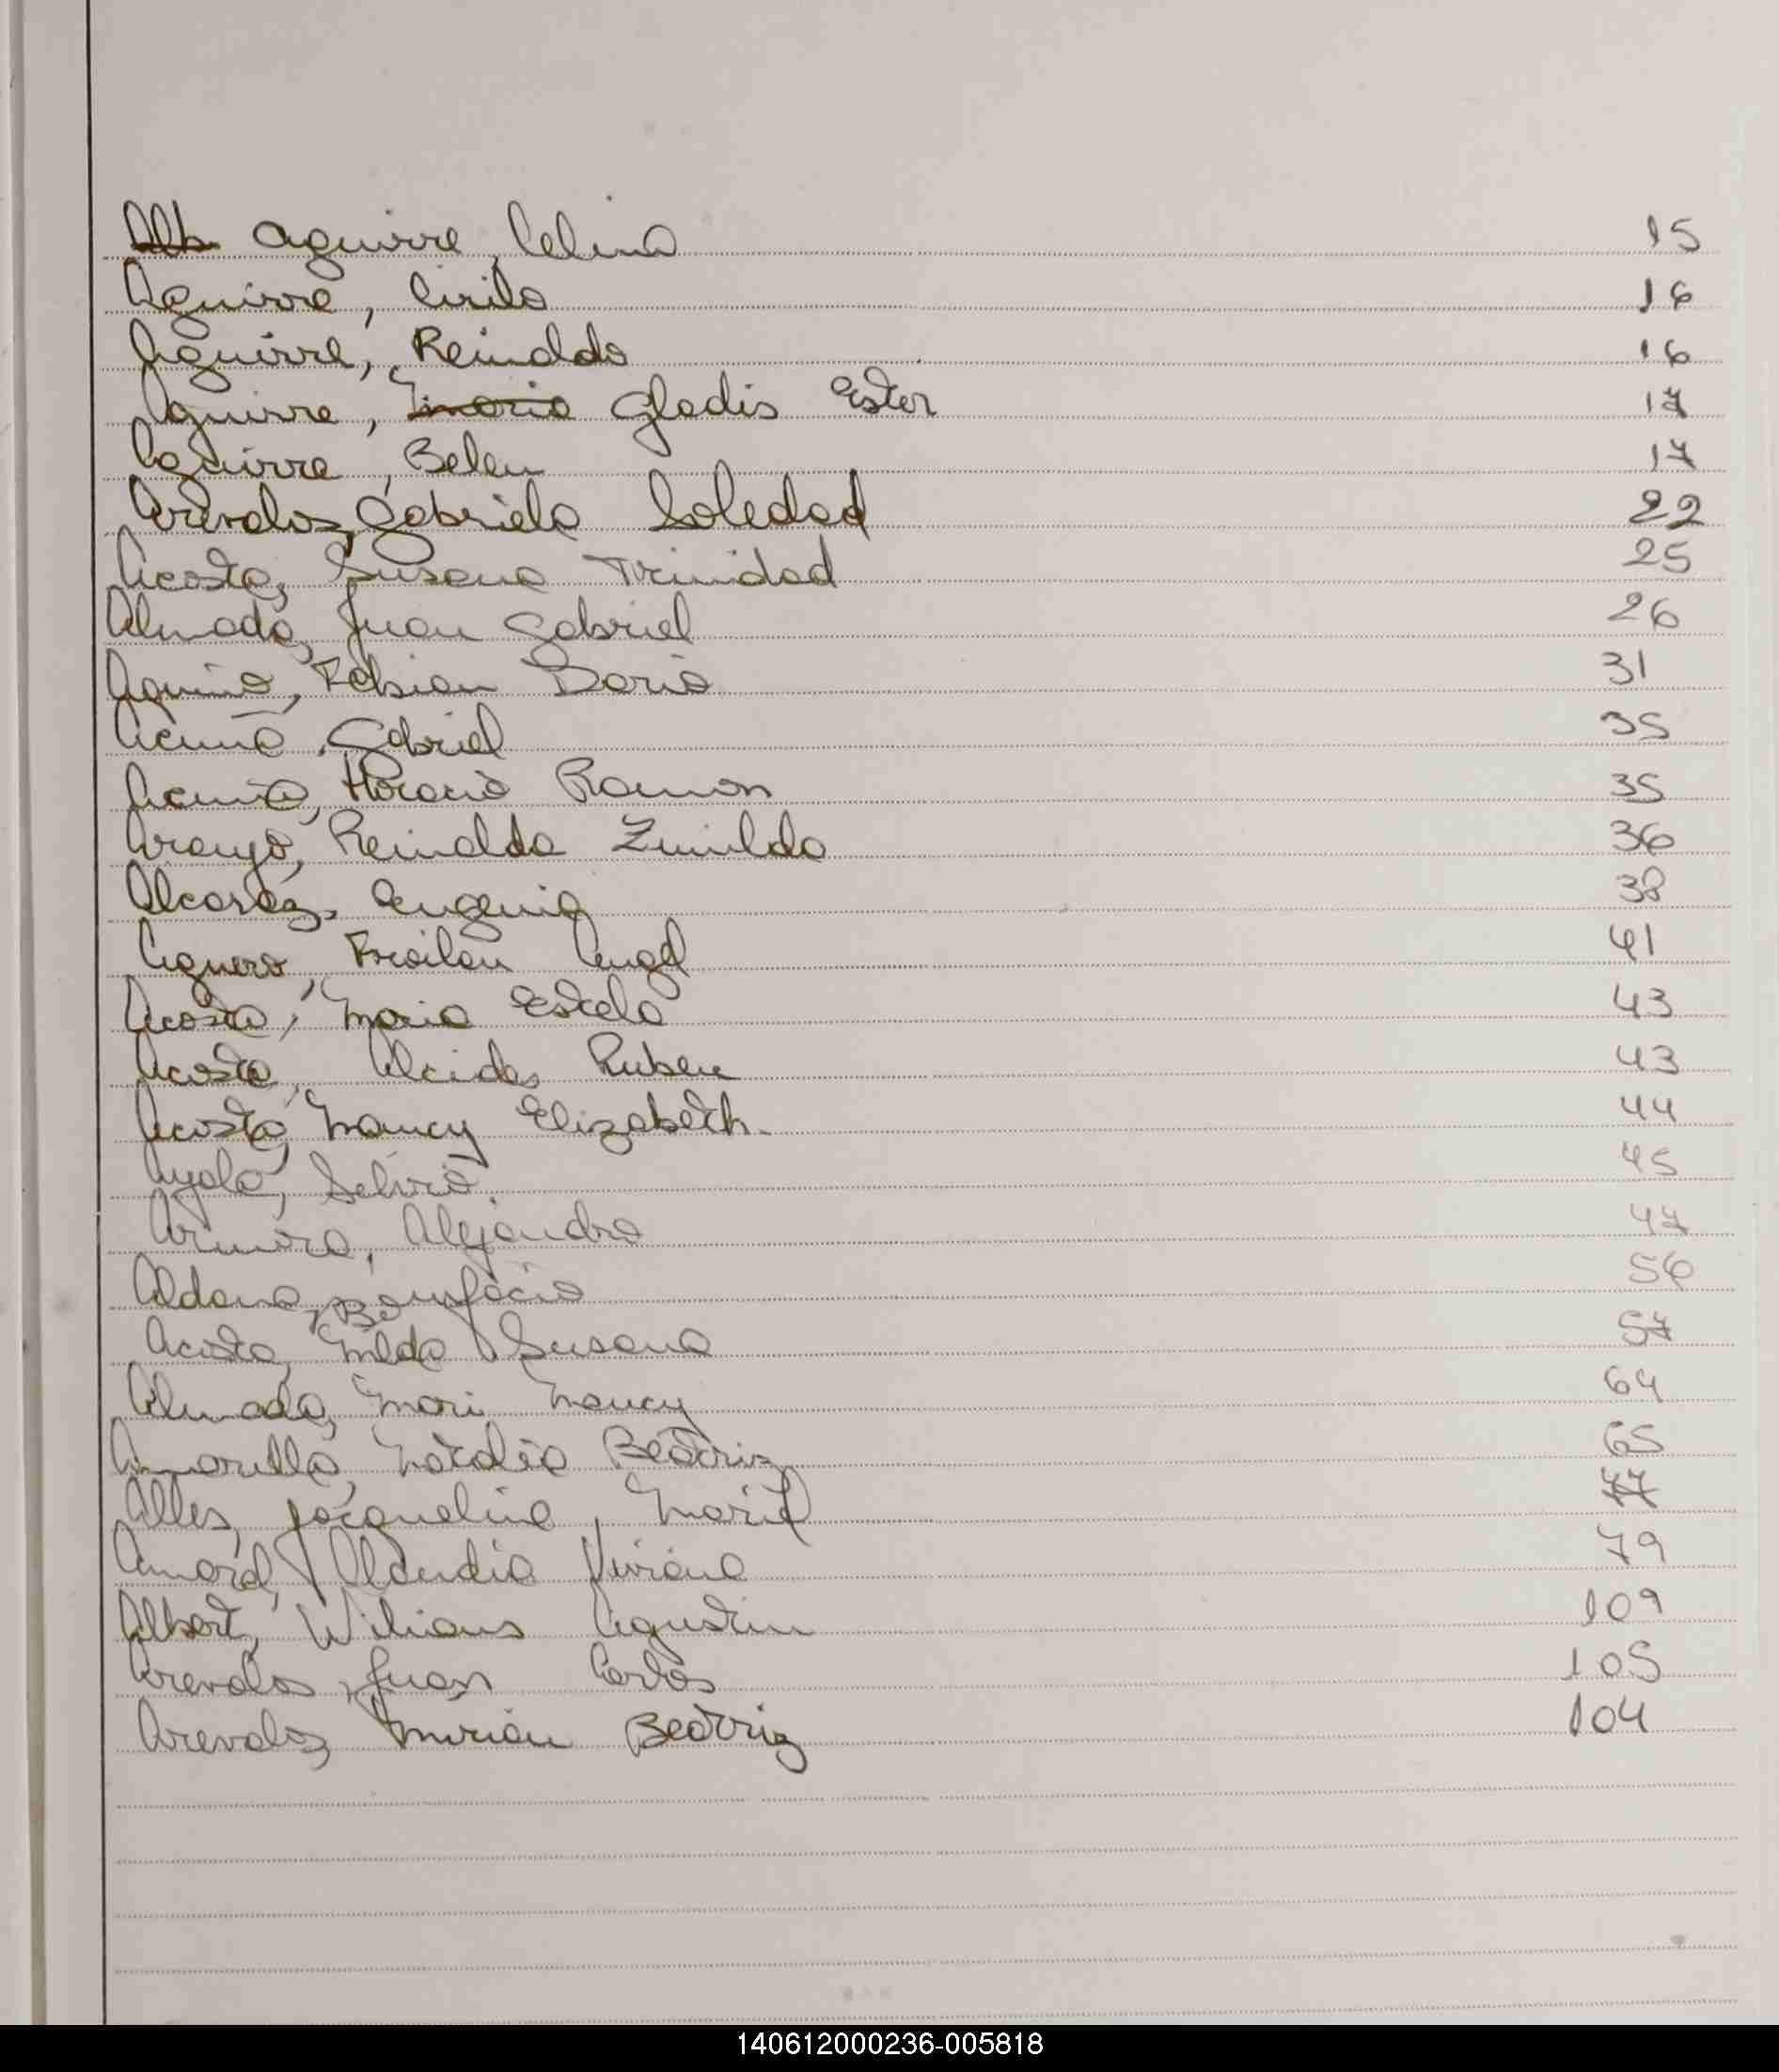 Alb Aguirre, Celina 15
Aguirre, Cirilo 16
Aguirre, Reinaldo 16
Aguirre, Maria Gladis Ester 17
Aguirre, Belen 17
Arevalos, Gabriela Soledad 22
Acosta, Susana Trinidad 25
Almada, Juan Gabriel 26
Aquino, Fabian Dario 31
Acuña, Gabriel 35
Acuña, Horacio Ramon 35
Araujo, Reinalda Zunilda 36
Alcaraz, Eugenia 38
Aguero, Froilan Angel 41
Acosta, Maria Estela 43
Acosta, Alcides Ruben 43
Acosta, Nancy Elizabeth 44
Ayala, 45
Armora, Alejandra 47
Aldana, Bonifacio 56
Acosta, Nilda Susana 57
Almada, Mari Nancy 64
Amarilla, Natalia Beatriz 65
Alles, Jacqueline, Mari 77
Viviana 79
Albert, Wilians Agustin 109
Arevalos, Juan Carlos 105
Arevalos, Mirian Beatriz 104
140612000236-005818